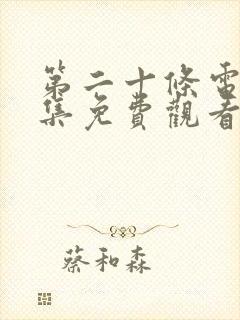 第二十條電
集免費觀看
蔡和森